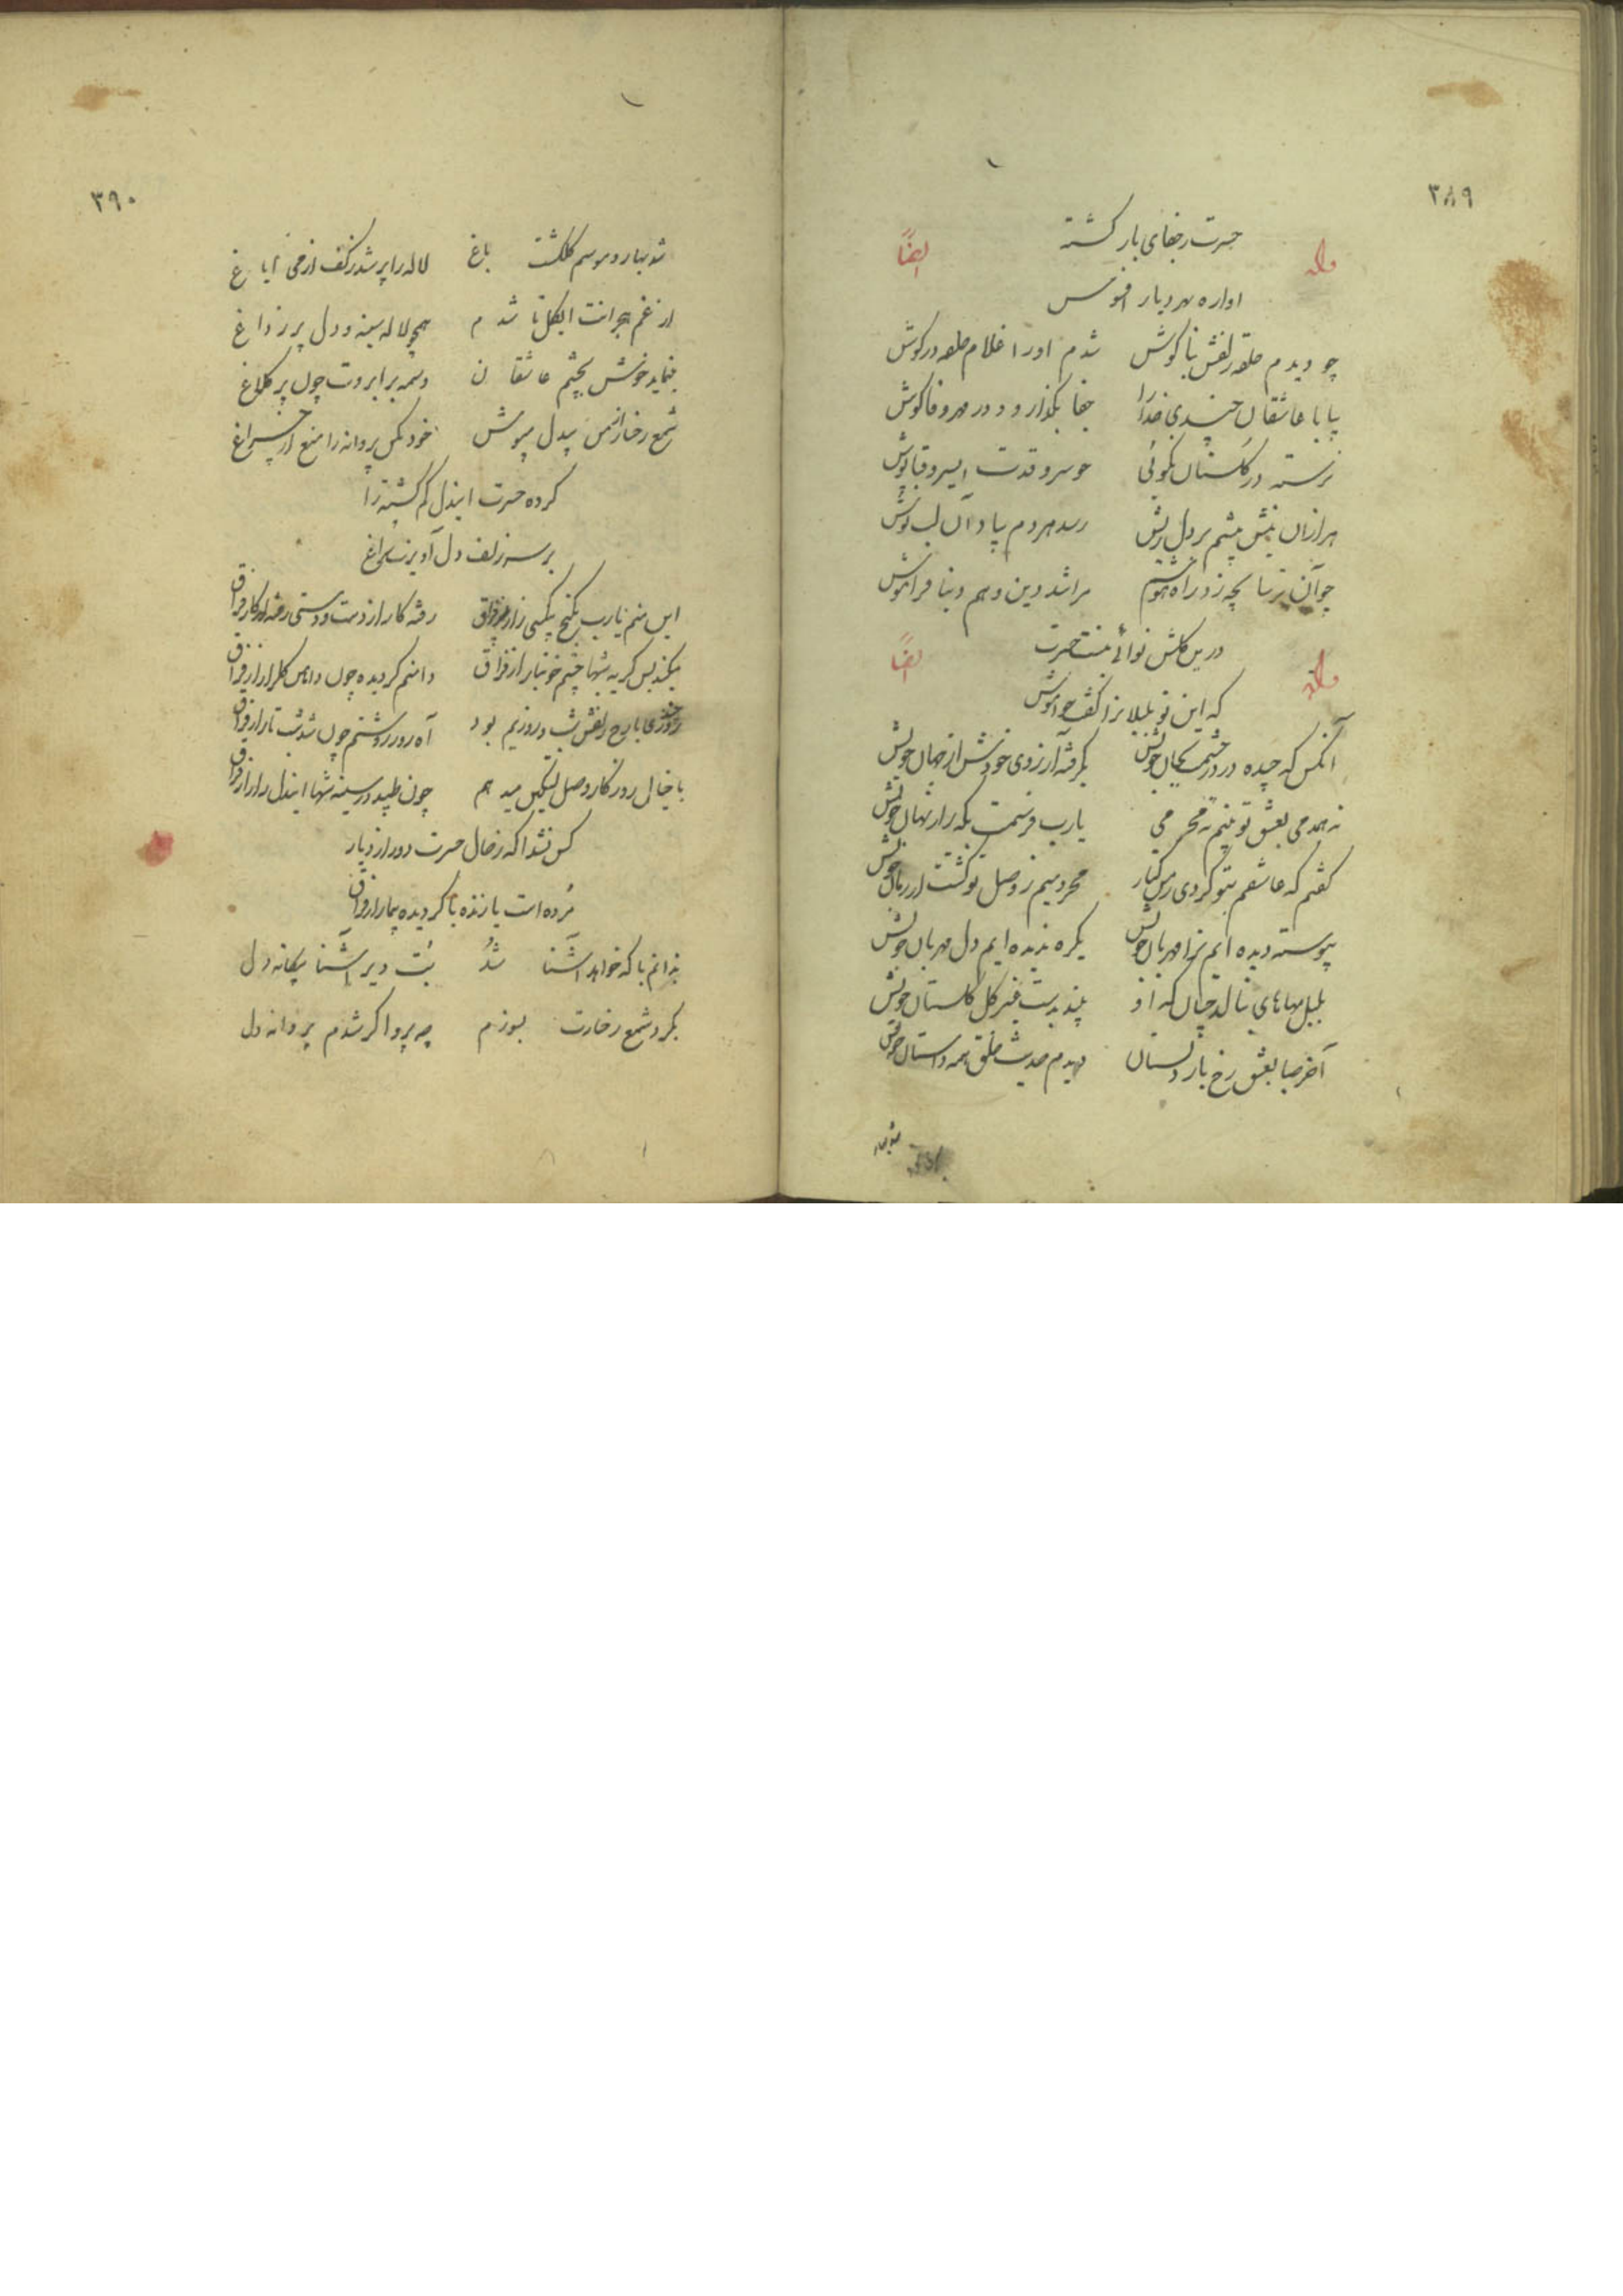 ۳۸۹
حسرت ز جفای یار گشته
وله ایضاً
اواره بهر دیار افسوس
چو دیدم حلقه زلفش بناگوش شدم او را غلام حلقه در گوش
بیا با عاشقان چندی خدا را جفا بگذار و در مهر و وفا کوش
نرسته در گلستان نکوئی چو سرو قدت ای سرو قباپوش
هزاران نیش بیشم بر دل ریش رسد هر دم بیاد آن لب نوش
چو آن ترسا بچه زد راه هوشم مرا شد دین و هم دنیا فراموش
درین گلشن نوائی حسرت
وله ایضاً
که این تو بلبلا نرا کف خواموش
آنکس که چیده در دو خویش بگرفته آرزوی خودش از جهان خویش
نه همدمی بعشق تو بینم نه محرمی یارب فرستمت بکه راز نهان خویش
گفتم که عاشقم بتو کردی ز من کنار محرومیم ز وصل تو گشت از زبان خویش
پیوسته دیده ایم ترا مهربان خویش یکره ندیده ایم دل مهربان خویش
بلبل بهای های بنالد چنان که او بیند بدست غیر گل گلستان خویش
آخر صبا بعشق رخ یار دلستان دیدم حدیث خلق همه داستان خویش
۳۹۰
شد بهار و موسم گلگشت باغ لاله را پر شد ز کف از می ایاغ
از غم هجرانت ای گل تا شدم همچو لاله سینه و دل پر ز داغ
مینماید خوش بچشم عاشقان وسمه بر ابروت چون پر کلاغ
شمع رخسار از من بیدل مپوش خود مکن پروانه را منع از چراغ
کرده حسرت ایندل گم گشته را
بر سر زلف دل آویزت سراغ
این منم یارب بکنج بیکسی زار از فراق رفته کار از دست و دستی رفته از کار از فراق
میکند بس گریه شبها چشم خونبار از فراق دامنم گردیده چون دامان گلزار از فراق
روزی با رخ زلفش شب و روزیم بود آه روز روشنم چون شد شب تار از فراق
با خیال روزگار وصل تسکین میدهم چون طپد در سینه شبها ایندل زار از فراق
کس نشد آگه ز حال حسرت دور از دیار
مرده است یا زنده یا گردیده بیمار از فراق
ندانم با که خواهد آشنا شد بت دیر آشنا بیگانه دل
بگرد شمع رخسارت بسوزم چه پروا گر شدم پروانه دل